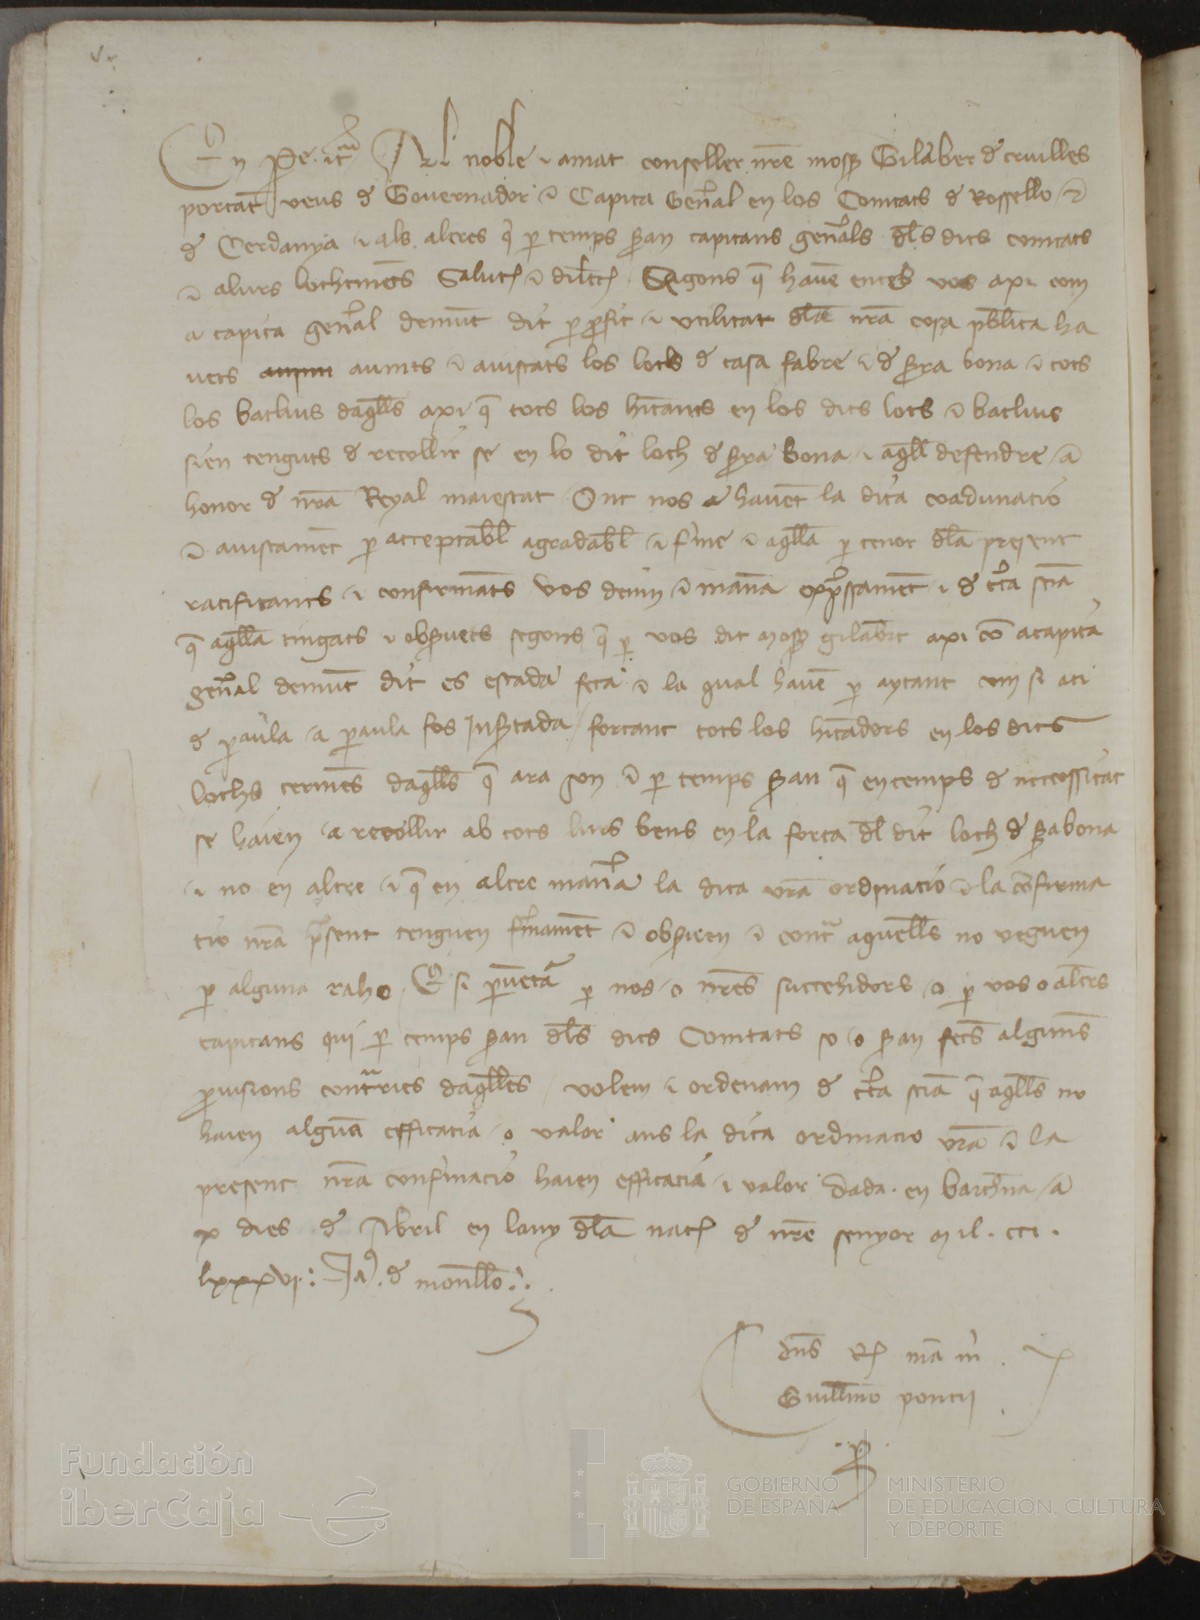 En Pere etc Al noble i amat conseller nr̄e mossē Gilaber de cruilles
portāt veus de Governador ⁊ Capita gen̄al en los Comtats de Rossello ⁊
de Cerdanya i als altres q̄ per temps seran capitans gen̄als dl̄s dits comtats
⁊ a lurs lochtinēts Salutē ⁊ dil̄ectē Segons q̄ havē entes vos axi com
a capita gen̄al demūt dit per profit i utilitat dl̄a nr̄a cosa publ̄ica ha
vets aunits ⁊ aiustats los lochs de casa fabre i de serra bona ⁊ tots
los batlius daq̄ll̄s axi q̄ tots los hītants en los dits lochs ⁊ batlius
sien tenguts de recollir se en lo dit loch de serra bona i aq̄ll defendre a
honor de nr̄a Reyal maiestat Ont nos havēt la dita coadunacio
⁊ aiustamēt per acceptabl̄e agradabl̄e i ferme ⁊ aq̄lla per tenor dl̄a present
ratificants i confirmāts vos dehim ⁊ manā expr̄ssamēt i de cer̄ta sciā
q̄ aq̄lla tingats i observets segons q̄ per vos dit mossē gilabert axi cō a capita
gen̄al demūt dit es estada feta ⁊ la qual havē per aytant com si aci
de paraula a paraula fos Insertada forcant tots los hītadors en los dits
lochs termēs daq̄ll̄s q̄ ara son ⁊ per temps seran q̄ en temps de necessitat
se haien a recollir ab tots lurs bens en la forca dl̄ dit loch de serabona
i no en altre i q̄ en altre manera la dita vr̄a ordinacio ⁊ la cōfirma
cio nr̄a present tenguen fermamēt ⁊ observen ⁊ contra aquell̄s no veguen
per alguna raho E si per vētura per nos o nr̄es succehidors o per vos o altres
capitans qui per temps seran dl̄s dits Comtats so o seran fetes algunes
provisions contraries daq̄ll̄es volem i ordenam de cer̄ta sciā q̄ aq̄ll̄s no
haien alguna efficacia o valor ans la dita ordinacio vr̄a ⁊ la
present nr̄a confermacio haien efficacia i valor Dada en barchn̄a a
x dies de Abril en lany dl̄a nat̄ de nr̄e senyor Mil. ccc.
lxxxvi: Ja. de monll̄o
Dn̄s Rex ma m̄
Guillm̄o poncii
P
Fundación
iberCaja
GOBIERNO
DE ESPAÑA
MINISTERIO
DE EDUCACIÓN, CULTURA
Y DEPORTE